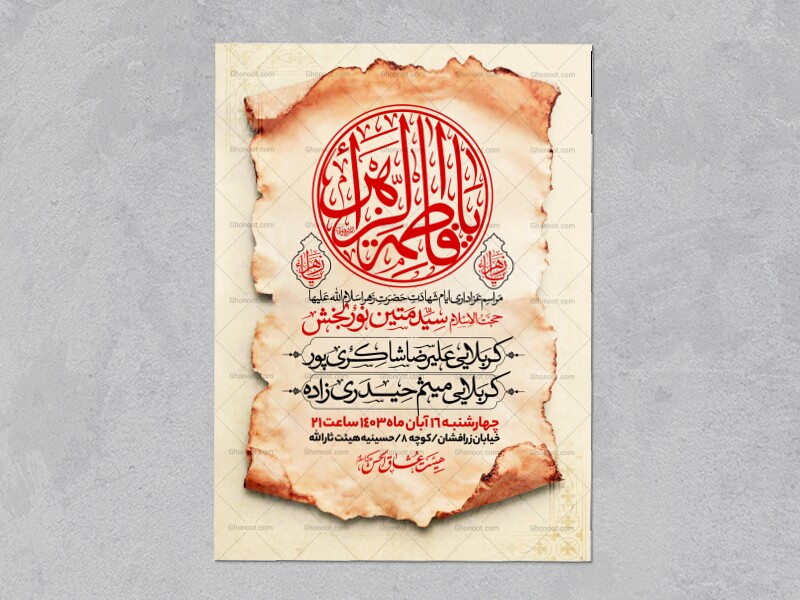 یا فاطمة الزهرا
یا زهرا
یا زهرا
مراسم عزاداری ایام شهادت حضرت زهرا سلام الله علیها
حجت الاسلام سید متین نوربخش
کربلایی علیرضا شاکری پور
کربلایی میثم حیدری زاده
چهارشنبه ۱۶ آبان ماه ۱۴۰۳ ساعت ۲۱
خیابان زرافشان/کوچه ۸/حسینیه هیئت ثارالله
هیئت عشاق الحسن
Ghonoot.com